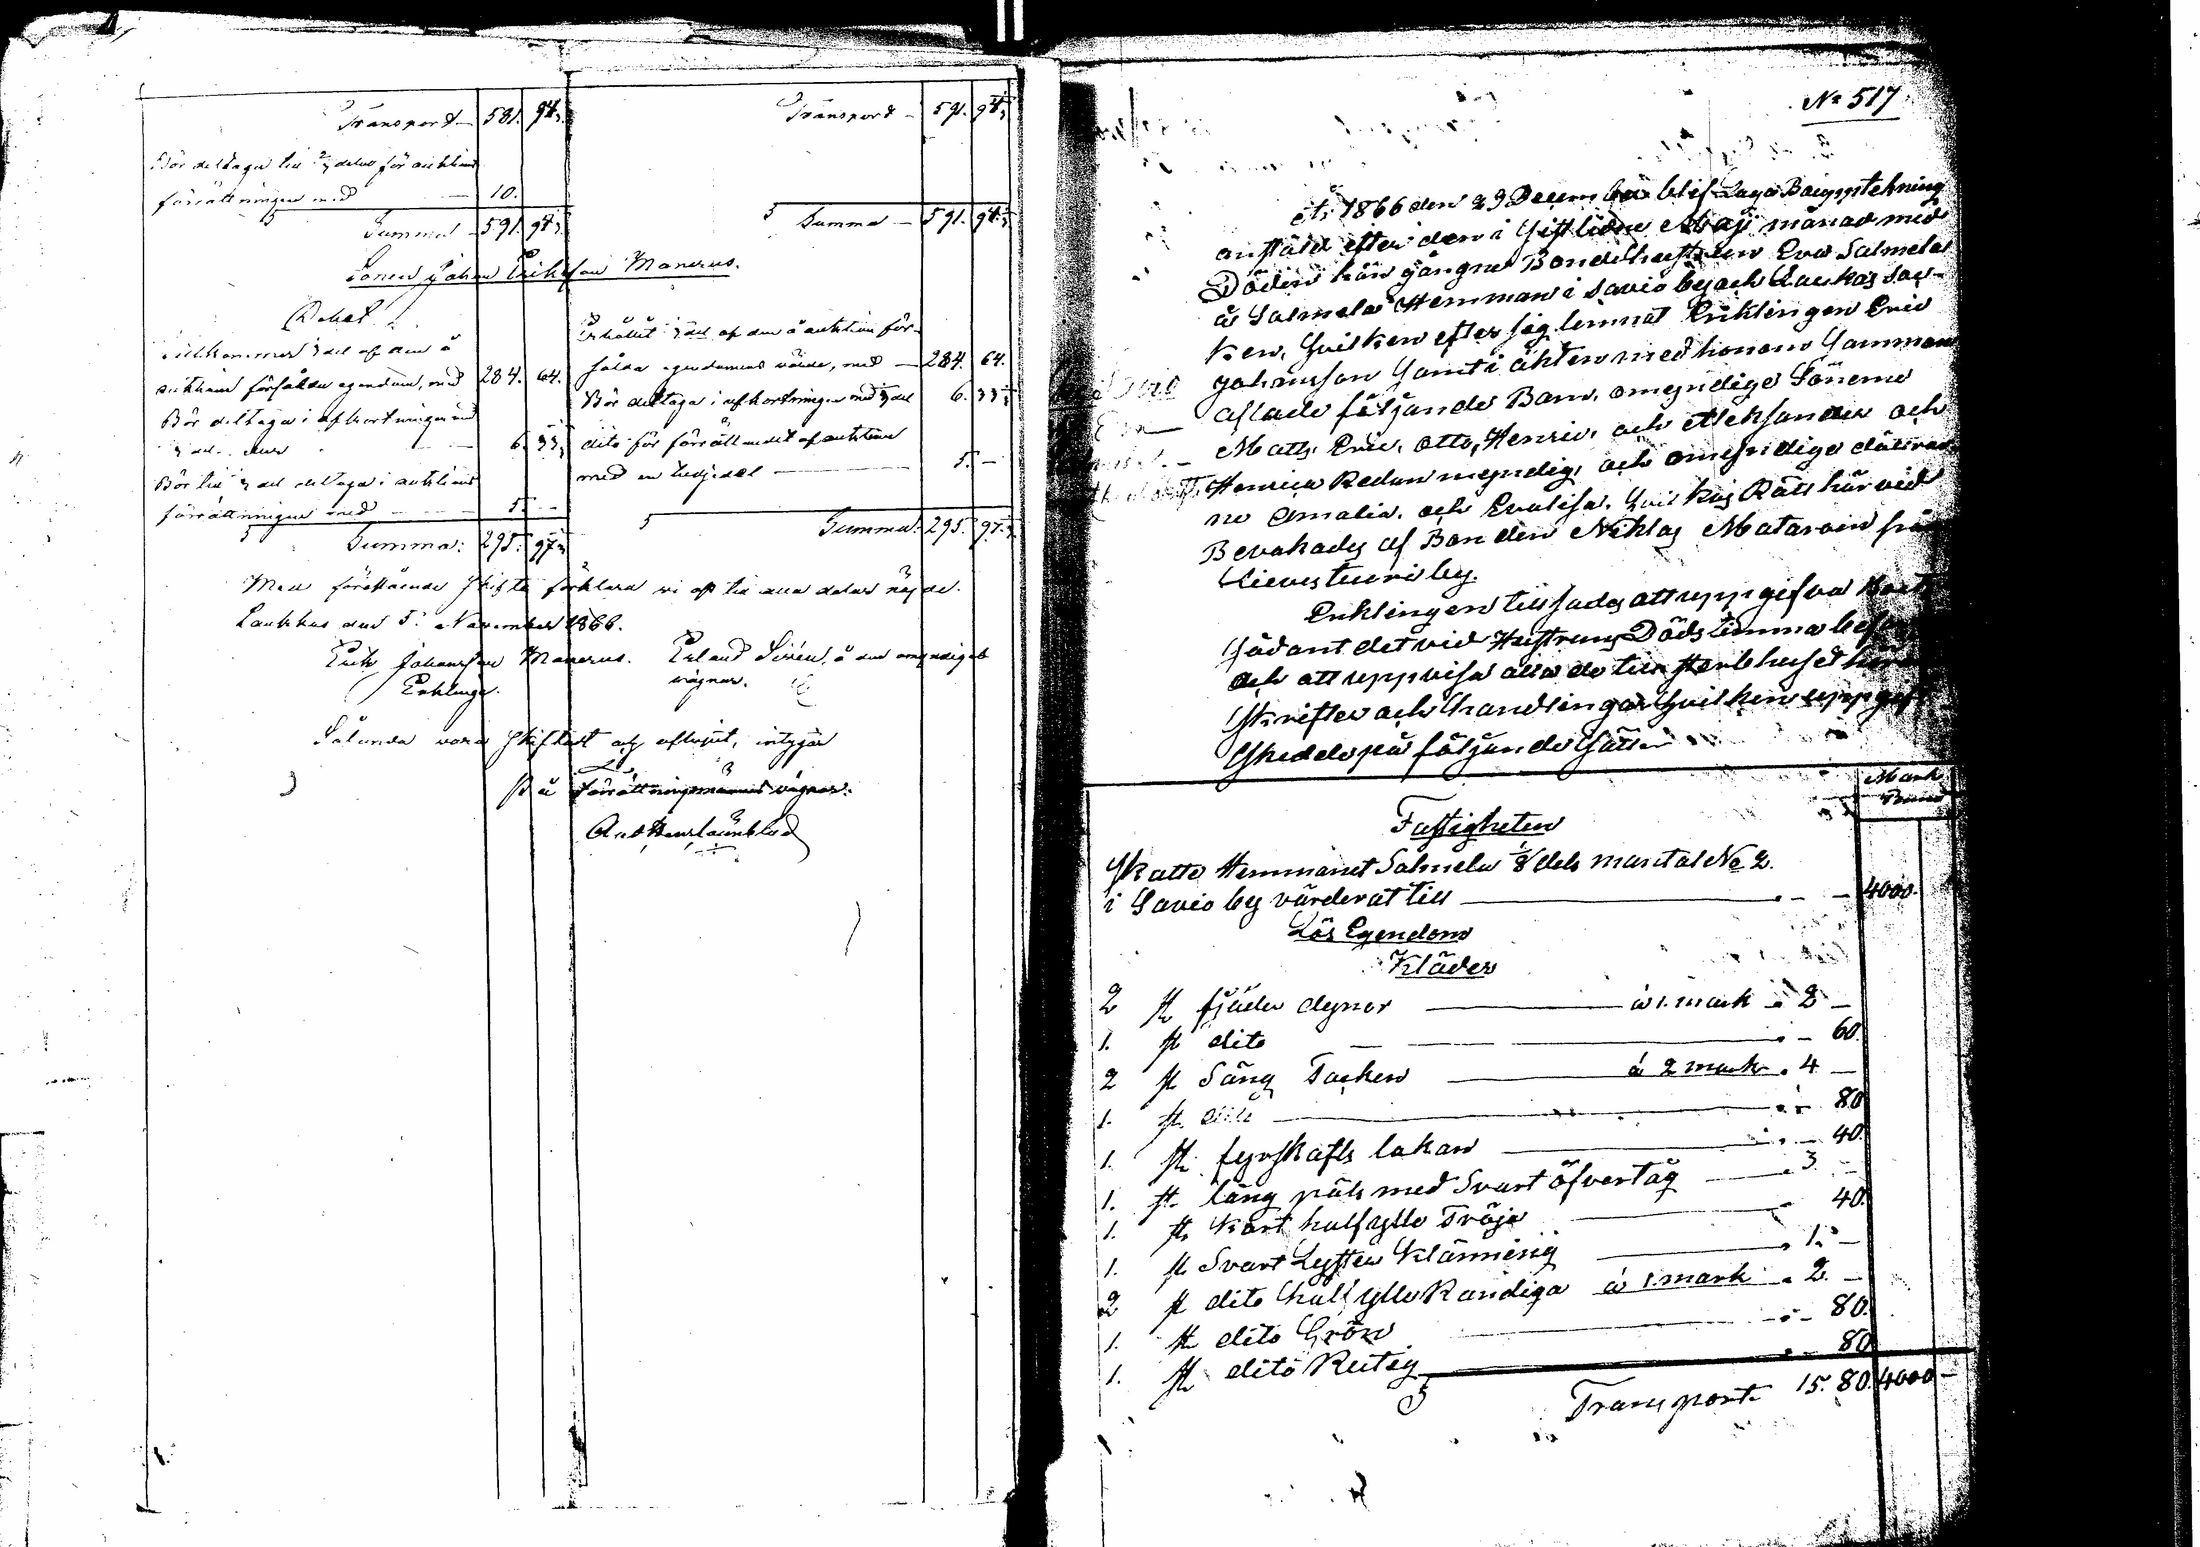 Transport 581. 94⅔
Bör deltaga till ⅔ delar för auktions
förrättningen med 10.
Summa 591. 94⅔
Transport 591. 94⅔
Summa 591. 94⅔
Sonen Johan Eriksson Manerus.
Debet
Tillkommer ⅓ del af den å
auktion försålda egendom, med 284. 64.
Bör deltaga i afkortningen med
⅓ del 6. 33⅓
Bör till ⅓ del deltaga i auktions
förrättningen med 5. -
Summa: 295. 97⅓
Erhållit ⅓ del af den å auktion för-
sålda egendomens värde, med 284. 64.
Bör deltaga i afkortningen med ⅓ del 6. 33⅓
dito för förrättandet af auktion
med en tredjedel 5. -
Summa: 295. 97⅓
Med förestående skifte förklara vi oss till alla delar nöjde.
Laukkas den 5. November 1866.
Erik Johansson Manerus. Erland Sirén, å den omyndiges
Enkling. vägnar.
Sålunda vara skiftadt och aflutit, intygar
På förrättningsmännens vägnar:
№ 517
År 1866 den 29 December blef Laga Bouppteckning
anstäld efter den i Sistlidne Maji månad med
Döden hän gångne Bondehustrun Eva Salmela
å Salmela Hemman i Savio by och Laukas Soc-
ken, Hvilken efter sig lemnat Enklingen Eric
Johansson Samt i äkten med honom Samman
aflade följande Barn, omyndige Sönerne
Matts, Eric, Otto, Henric, och Aleksander och
Henrica Redan myndig, och omyndige döttrar
ne Amalia, och Evalisa, Hvilkas Rätt härvid
Bevakades af Bonden Niklas Matarain från
Lievestuori by.
Enklingen tillsades att uppgifva Boet
Sådant det vid Hustruns Dödstimma befans
och att uppvisa alla de till Sterbhuset höra
Skrifter och handlingar Hvilken uppgift
Skedde på följande Sätt
Mark
Penni
Fastigheten
Skatte Hemmanet Salmela ⅛ dels mantal № 2.
i Savio by värderat till 4000.
Lös Egendom
Kläder
2 st fjäder dynor à 1. mark 2 -
1. st dito - 60.
2 st Säng Täcken à 2 mark 4 -
1. st dito - 80
1. st fyrskafts lakan - 40.
1. st lång päls med Svart öfvertåg 3 -
1. st kort halfylle Tröja 40.
1. st Svart Lysten Klänning 1. -
2 st dito halfylle Randiga à 1. mark 2. -
1. st dito Grön - 80.
1. st dito Rutig - 80
Transport 15. 80. 4000 -